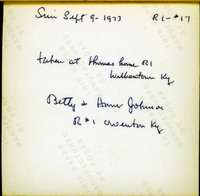 Sun Sept 9-1973 R1-#17
taken at Thomas home R1
Williamstown Ky
Betty & Anna Johnson
R#1 Owenton Ky